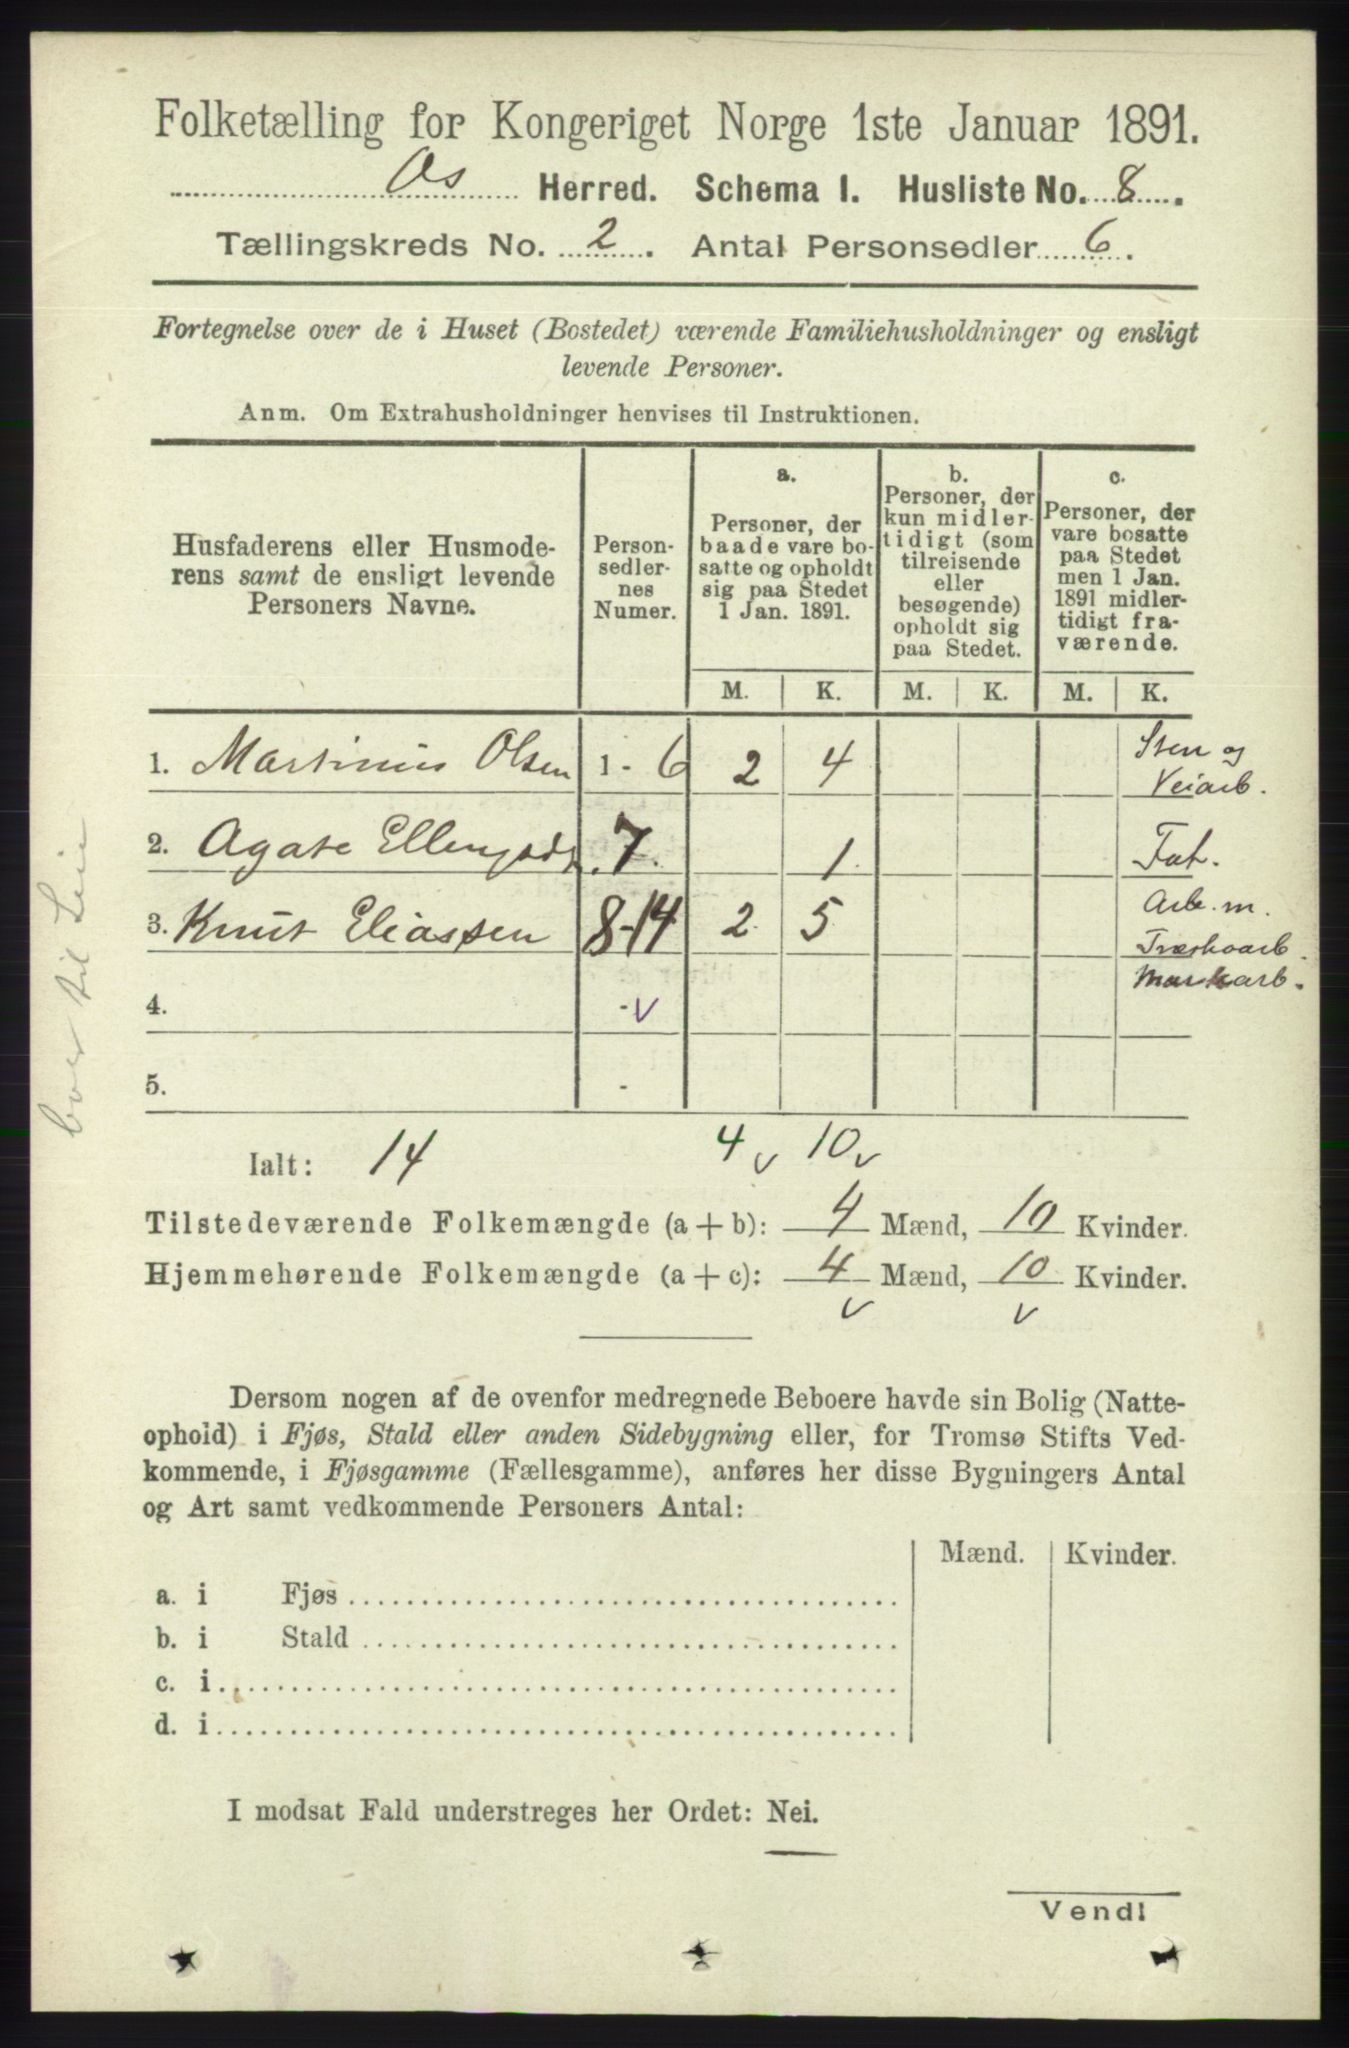 Folketælling for Kongeriget Norge 1ste Januar 1891.
Os Herred. Schema I. Husliste No. 8.
Tællingskreds No. 2. Antal Personsedler 6.
Fortegnelse over de i Huset (Bostedet) værende Familiehusholdninger og ensligt
levende Personer.
Anm. Om Extrahusholdninger henvises til Instruktionen.
Husfaderens eller Husmode-
rens samt de ensligt levende
Personers Navne.
Person-
sedler-
nes
Numer.
a.
Personer, der
baade vare bo-
satte og opholdt
sig paa Stedet
1 Jan. 1891.
b.
Personer, der
kun midler-
tidigt (som
tilreisende
eller
besøgende)
opholdt sig
paa Stedet.
c.
Personer, der
vare bosatte
paa Stedet
men 1 Jan.
1891 midler-
tidigt fra-
værende.
M. K. M. K. M. K.
1. Martinus Olsen 1 - 6 2 4 Sten og
Veiarb.
2. Agate Ellingsd. 7. 1. Fat.
3. Knut Eliassen 8-14 2. 5 Arb. m.
Træskoarb.
Markarb.
4. - v
5. -
bor til Leie
Ialt: 14 4 v 10 v
Tilstedeværende Folkemængde (a + b): 4 Mænd, 10 Kvinder.
Hjemmehørende Folkemængde (a + c): 4 Mænd, 10 Kvinder.
v v
Dersom nogen af de ovenfor medregnede Beboere havde sin Bolig (Natte-
ophold) i Fjøs, Stald eller anden Sidebygning eller, for Tromsø Stifts Ved-
kommende, i Fjøsgamme (Fællesgamme), anføres her disse Bygningers Antal
og Art samt vedkommende Personers Antal:
Mænd. Kvinder.
a. i Fjøs
b. i Stald
c. i
d. i
I modsat Fald understreges her Ordet: Nei.
Vend!